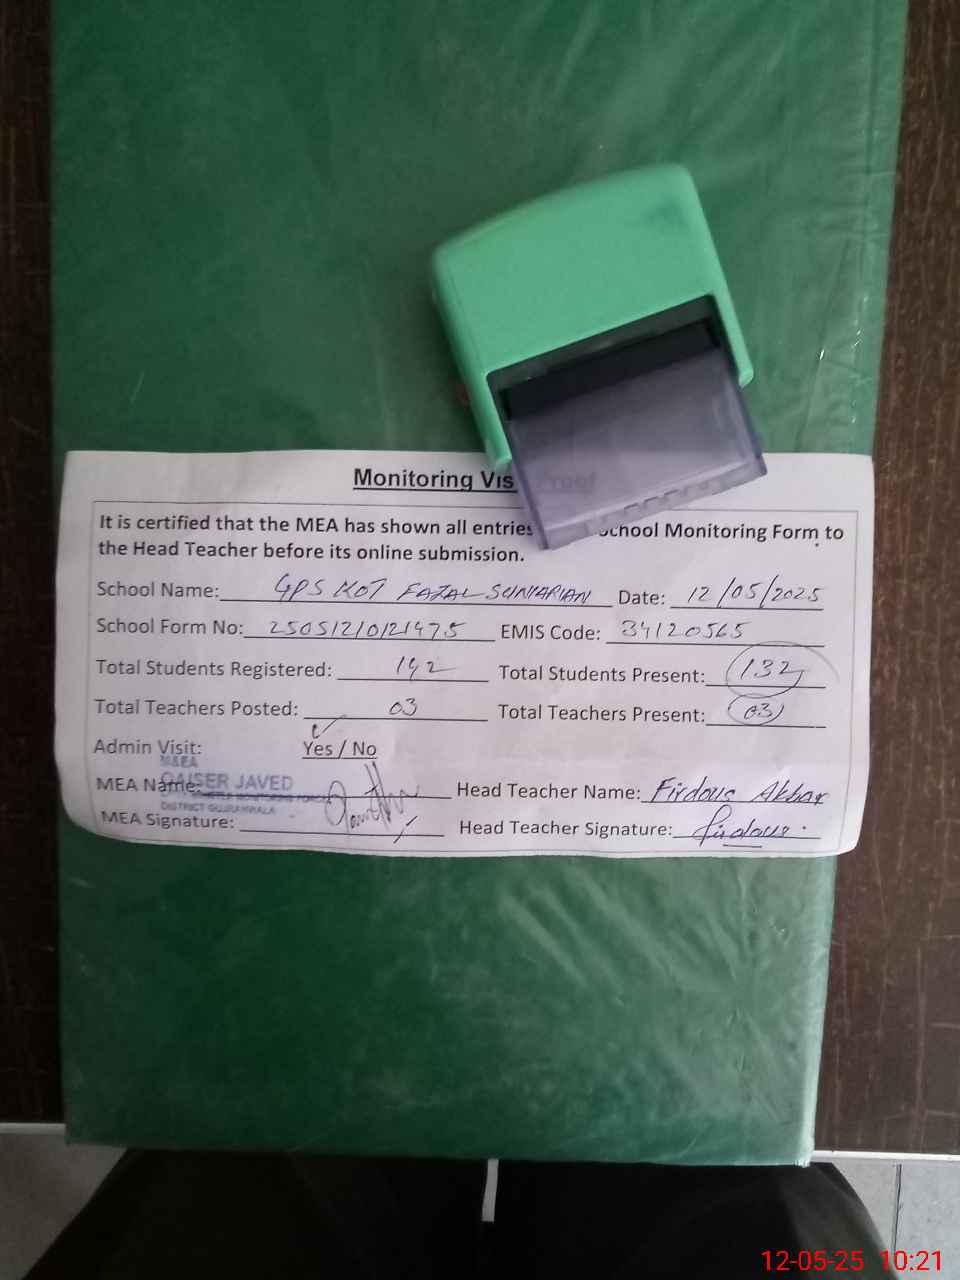 Monitoring Vis
It is certified that the MEA has shown all entries School Monitoring Form to
the Head Teacher before its online submission.
School Name: GPS KOT FAZAL SUNIARIAN Date: 12/05/2025
School Form No: 250512101211475 EMIS Code: 34120565
Total Students Registered: 142 Total Students Present: 132
Total Teachers Posted: 03 Total Teachers Present: 03
Admin Visit: Yes / No
M&EA
MEA Name: QAISER JAVED Head Teacher Name: Firdous Akhar
MONITORING FORCE
DISTRICT GUJRANWALA
MEA Signature: Head Teacher Signature: Firdous.
12-05-25 10:21